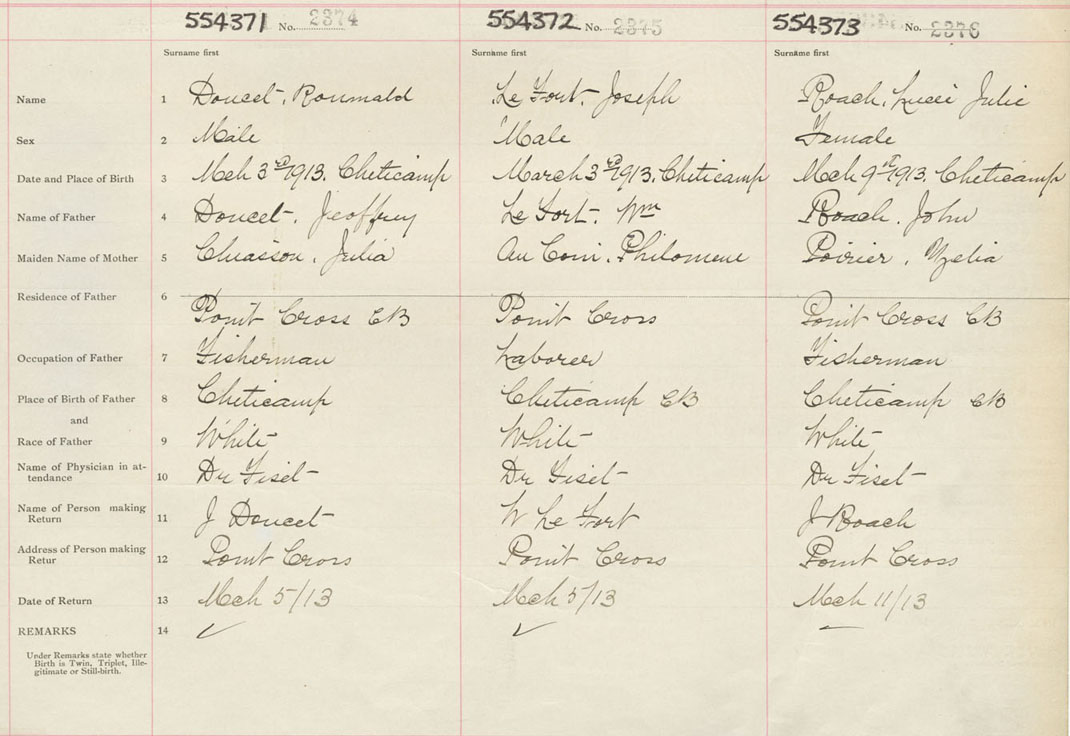 554371 No. 2374 554372 No. 2375 554373 No. 2376
Surname first Surname first Surname first
Name 1 Doucet, Roumald Le Fort, Joseph Roach, Lucci Julie
Sex 2 Male Male Female
Date and Place of Birth 3 Mch 3rd 1913. Cheticamp March 3rd 1913. Cheticamp Mch 9st 1913 Cheticamp
Name of Father 4 Doucet, Jeoffrey Le Fort, Wm Roach, John
Maiden Name of Mother 5 Chiasson, Julia Au Coin, Philomene Poirier,
Residence of Father 6
Point Cross CB Point Cross Point Cross CB
Occupation of Father 7 Fisherman Laborer Fisherman
Place of Birth of Father 8 Cheticamp Cheticamp CB Cheticamp CB
and
Race of Father 9 White White White
Name of Physician in at-
tendance 10 Dr Fiset Dr Fiset Dr Fiset
Name of Person making
Return 11 J Doucet W Le Fort J Roach
Address of Person making
Retur 12 Point Cross Point Cross Point Cross
Date of Return 13 Mch 5/13 Mch 5/13 Mch 11/13
REMARKS 14
Under Remarks state whether
Birth is Twin, Triplet, Ille-
gitimate or Still-birth.